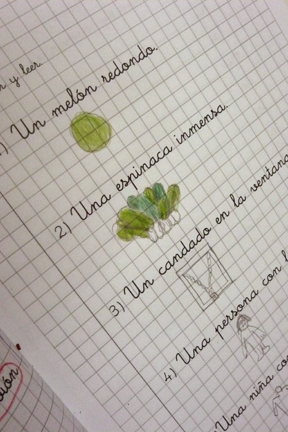 y leer.
1) Un melón redondo.
2) Una espinaca inmensa.
3) Un candado en la ventana
4) Una persona con
Una niña co